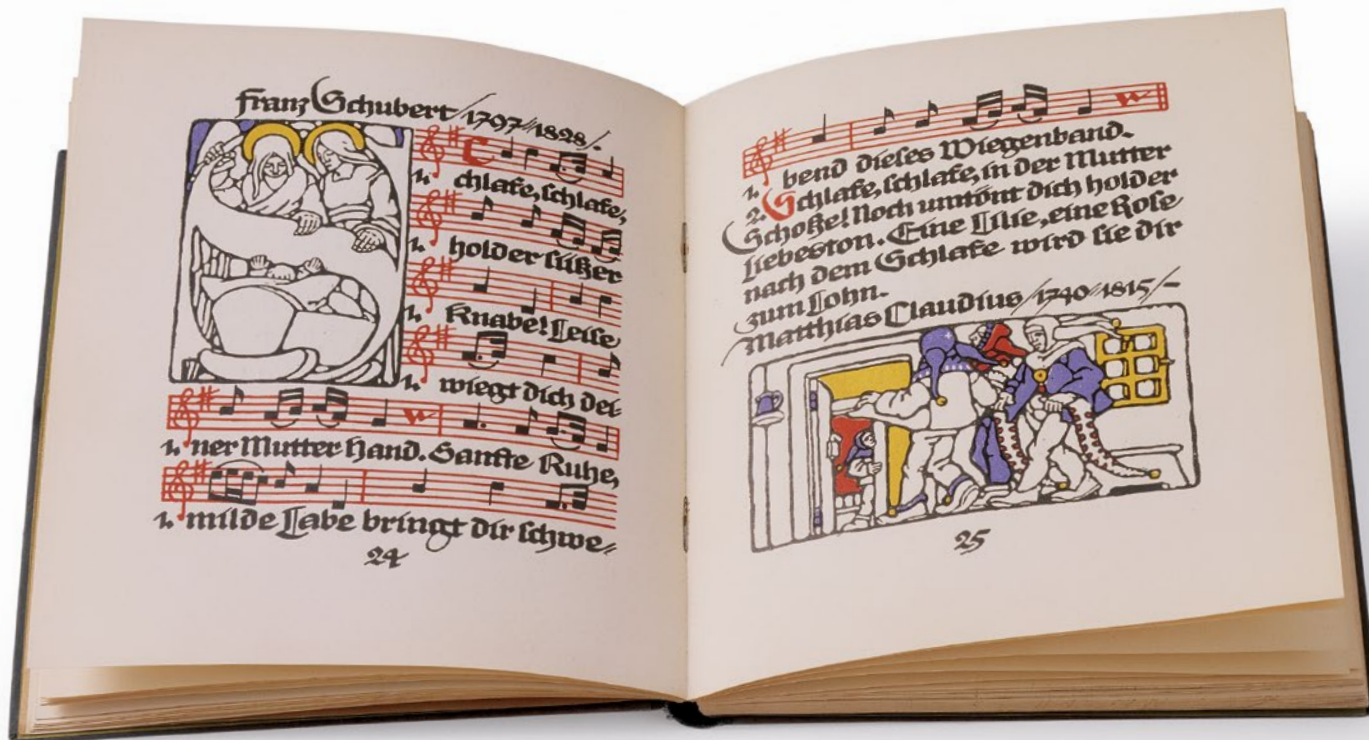 Franz Schubert / 1797 // 1828 /.
1. Schlafe, schlafe,
1. holder süßer
1. Knabe! Leise
1. wiegt dich dei-
1. ner Mutter Hand. Sanfte Ruhe,
1. milde Labe bringt dir schwe-
24
1. bend dieses Wiegenband.
2. Schlafe, schlafe, in der Mutter
Schoße! Noch umtönt dich holder
Liebeston. Eine Lilie, eine Rose
nach dem Schlafe wird sie dir
zum Lohn.
Matthias Claudius / 1740 // 1815 / –
25